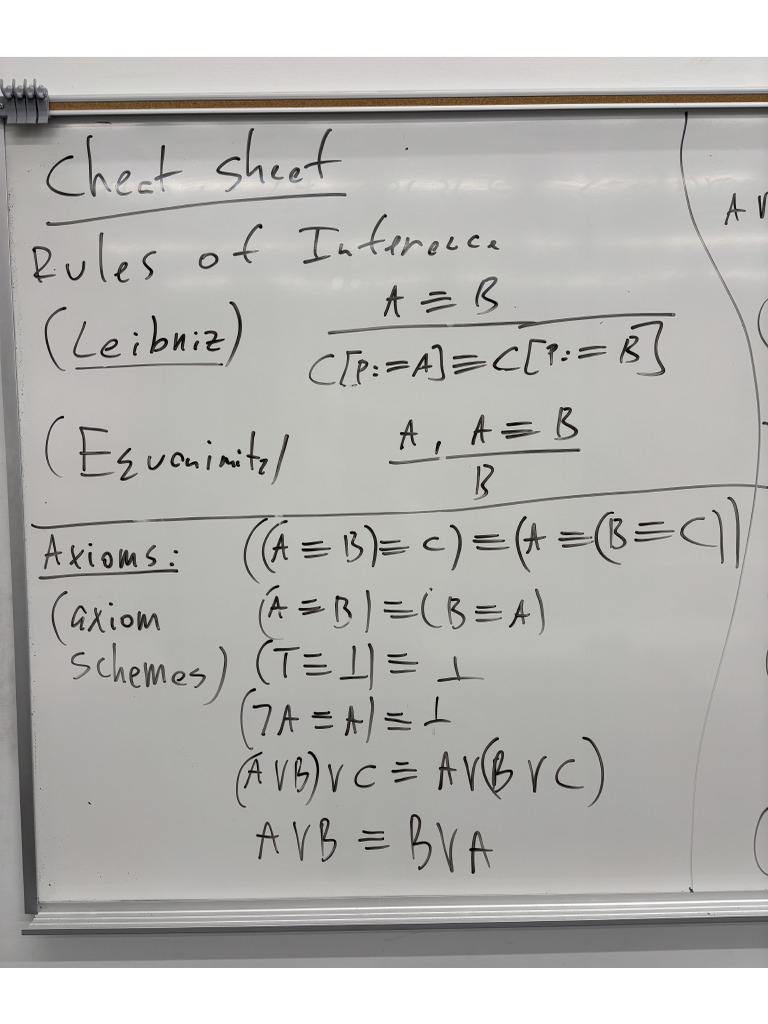 Cheat sheet
Rules of Inference
(Leibniz) A ≡ B
C[p:=A]≡C[p:=B]
(Equanimity) A, A ≡ B
B
Axioms: ((A ≡ B)≡ C)≡(A ≡(B≡C))
(axiom (A ≡ B)≡(B ≡ A)
schemes) (T≡⊥)≡ ⊥
(¬A ≡ A)≡⊥
(A∨B)∨C ≡ A∨(B∨C)
A∨B ≡ B∨A
A∨